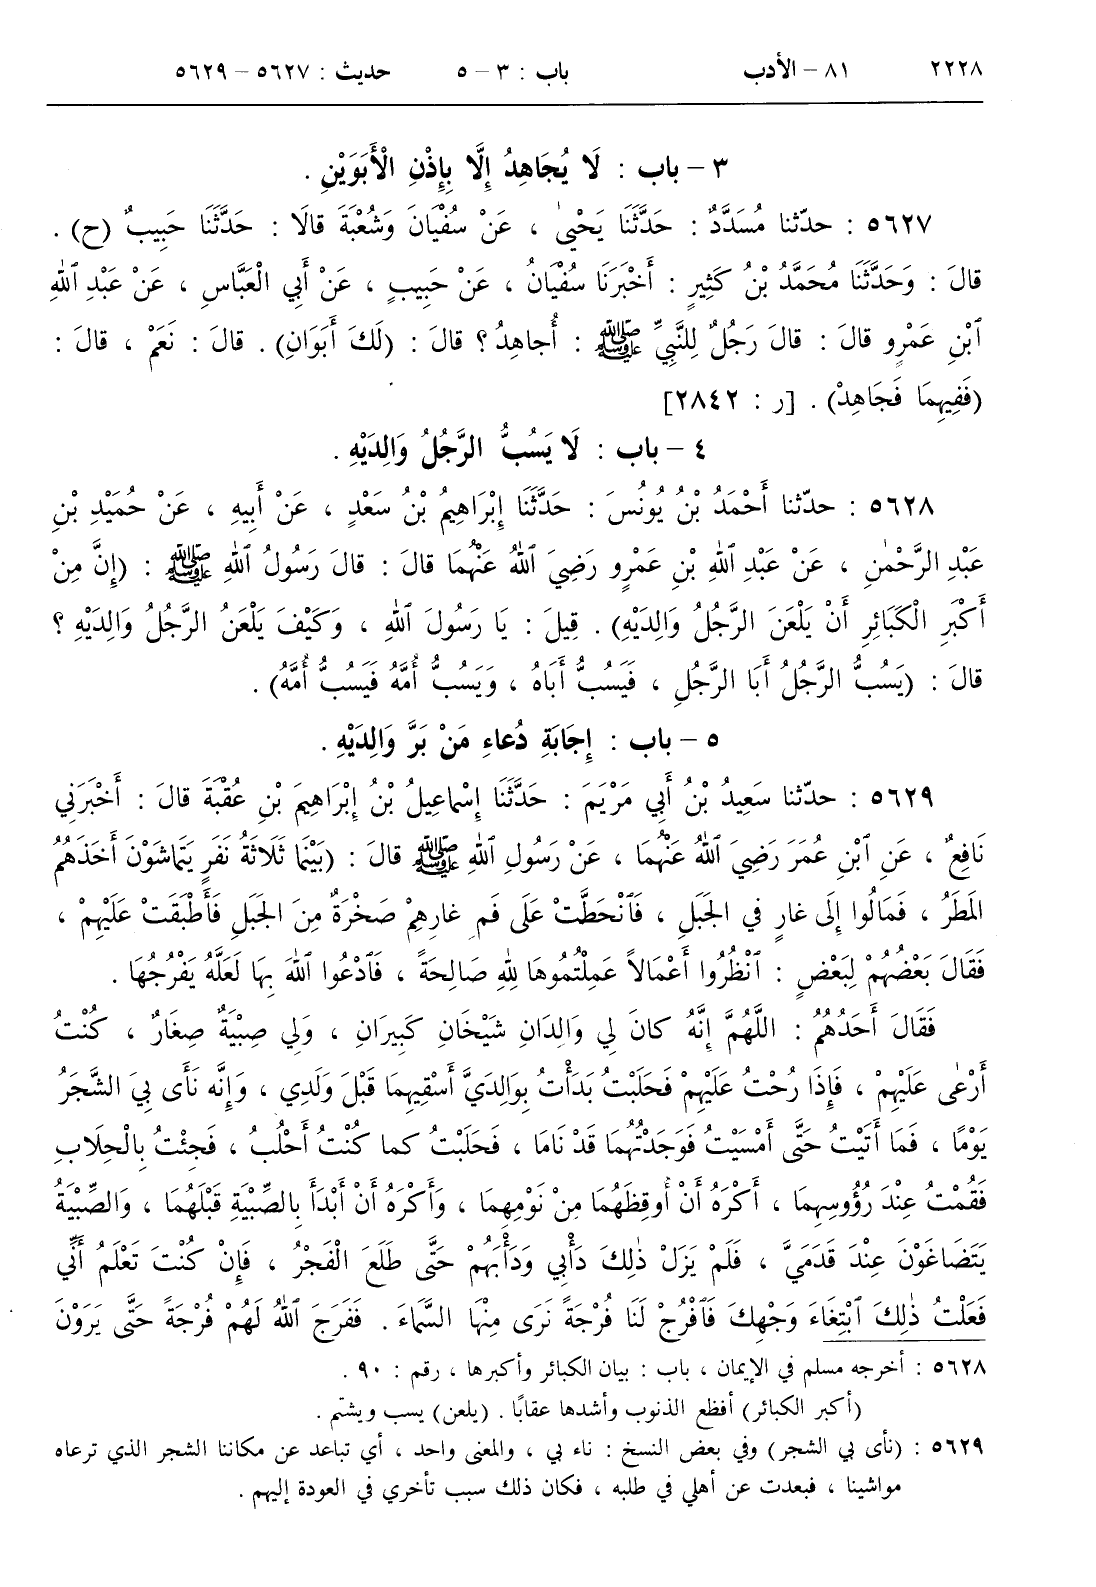 ٢٢٢٨ ٨١ – الأدب باب : ٣ – ٥ حديث : ٥٦٢٧ – ٥٦٢٩
٣ – باب : لَا يُجَاهِدُ إِلَّا بِإِذْنِ الْأَبَوَيْنِ .
٥٦٢٧ : حدّثنا مُسَدَّدٌ : حَدَّثَنَا يَحْيىٰ ، عَنْ سُفْيَانَ وَشُعْبَةَ قالَا : حَدَّثَنَا حَبِيبٌ (ح) .
قالَ : وَحَدَّثَنَا مُحَمَّدُ بْنُ كَثِيرٍ : أَخْبَرَنَا سُفْيَانُ ، عَنْ حَبِيبٍ ، عَنْ أَبِي الْعَبَّاسِ ، عَنْ عَبْدِ ٱللهِ
ٱبْنِ عَمْرٍو قالَ : قالَ رَجُلٌ لِلنَّبِيِّ ﷺ : أُجاهِدُ ؟ قالَ : (لَكَ أَبَوَانِ) . قالَ : نَعَمْ ، قالَ :
(فَفِيهِمَا فَجَاهِدْ) . [ر : ٢٨٤٢]
٤ – باب : لَا يَسُبُّ الرَّجُلُ وَالِدَيْهِ .
٥٦٢٨ : حدّثنا أَحْمَدُ بْنُ يُونُسَ : حَدَّثَنَا إِبْرَاهِيمُ بْنُ سَعْدٍ ، عَنْ أَبِيهِ ، عَنْ حُمَيْدِ بْنِ
عَبْدِ الرَّحْمٰنِ ، عَنْ عَبْدِ ٱللهِ بْنِ عَمْرٍو رَضِيَ ٱللهُ عَنْهُمَا قالَ : قالَ رَسُولُ ٱللهِ ﷺ : (إِنَّ مِنْ
أَكْبَرِ الْكَبَائِرِ أَنْ يَلْعَنَ الرَّجُلُ وَالِدَيْهِ) . قِيلَ : يَا رَسُولَ ٱللهِ ، وَكَيْفَ يَلْعَنُ الرَّجُلُ وَالِدَيْهِ ؟
قالَ : (يَسُبُّ الرَّجُلُ أَبَا الرَّجُلِ ، فَيَسُبُّ أَبَاهُ ، وَيَسُبُّ أُمَّهُ فَيَسُبُّ أُمَّهُ) .
٥ – باب : إِجَابَةِ دُعاءِ مَنْ بَرَّ وَالِدَيْهِ .
٥٦٢٩ : حدّثنا سَعِيدُ بْنُ أَبِي مَرْيَمَ : حَدَّثَنَا إِسْماعِيلُ بْنُ إِبْرَاهِيمَ بْنِ عُقْبَةَ قالَ : أَخْبَرَنِي
نَافِعٌ ، عَنِ ٱبْنِ عُمَرَ رَضِيَ ٱللهُ عَنْهُمَا ، عَنْ رَسُولِ ٱللهِ ﷺ قالَ : (بَيْنَما ثَلَاثَةُ نَفَرٍ يَتَماشَوْنَ أَخَذَهُمُ
المَطَرُ ، فَمَالُوا إِلَى غارٍ في الجَبَلِ ، فَٱنْحَطَّتْ عَلَى فَمِ غارِهِمْ صَخْرَةٌ مِنَ الجَبَلِ فَأَطْبَقَتْ عَلَيْهِمْ ،
فَقَالَ بَعْضُهُمْ لِبَعْضٍ : ٱنْظُرُوا أَعْمَالاً عَمِلْتُمُوهَا لِلهِ صَالِحَةً ، فَٱدْعُوا ٱللهَ بِهَا لَعَلَّهُ يَفْرُجُهَا .
فَقَالَ أَحَدُهُمْ : اللَّهُمَّ إِنَّهُ كانَ لِي وَالِدَانِ شَيْخَانِ كَبِيرَانِ ، وَلِي صِبْيَةٌ صِغَارٌ ، كُنْتُ
أَرْعٰى عَلَيْهِمْ ، فَإِذَا رُحْتُ عَلَيْهِمْ فَحَلَبْتُ بَدَأْتُ بِوَالِدَيَّ أَسْقِيهِمَا قَبْلَ وَلَدِي ، وَإِنَّه نَأَى بِيَ الشَّجَرُ
يَوْمًا ، فَمَا أَتَيْتُ حَتَّى أَمْسَيْتُ فَوَجَدْتُهُمَا قَدْ نَامَا ، فَحَلَبْتُ كما كُنْتُ أَحْلُبُ ، فَجِئْتُ بِالْحِلَابِ
فَقُمْتُ عِنْدَ رُؤُوسِهِمَا ، أَكْرَهُ أَنْ أُوقِظَهُمَا مِنْ نَوْمِهِمَا ، وَأَكْرَهُ أَنْ أَبْدَأَ بِالصِّبْيَةِ قَبْلَهُمَا ، وَالصِّبْيَةُ
يَتَضَاغَوْنَ عِنْدَ قَدَمَيَّ ، فَلَمْ يَزَلْ ذٰلِكَ دَأْبِي وَدَأْبَهُمْ حَتَّى طَلَعَ الْفَجْرُ ، فَإِنْ كُنْتَ تَعْلَمُ أَنِّي
فَعَلْتُ ذٰلِكَ ٱبْتِغَاءَ وَجْهِكَ فَٱفْرُجْ لَنَا فُرْجَةً نَرَى مِنْهَا السَّمَاءَ . فَفَرَجَ ٱللهُ لَهُمْ فُرْجَةً حَتَّى يَرَوْنَ
٥٦٢٨ : أخرجه مسلم في الإيمان ، باب : بيان الكبائر وأكبرها ، رقم : ٩٠ .
(أكبر الكبائر) أفظع الذنوب وأشدها عقابًا . (يلعن) يسب ويشتم .
٥٦٢٩ : (نأى بي الشجر) وفي بعض النسخ : ناء بي ، والمعنى واحد ، أي تباعد عن مكاننا الشجر الذي ترعاه
مواشينا ، فبعدت عن أهلي في طلبه ، فكان ذلك سبب تأخري في العودة إليهم .